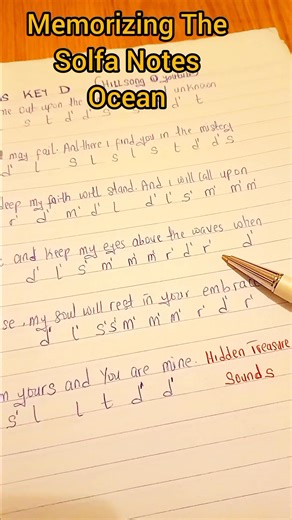 Memorizing The
Solfa Notes
Ocean
KEY D (Hillsong @ youtube
me out upon the unknown
s t d' d' d' t
may fail. And there I find you in the mystery
d' l s l s l s t d' d' s
deep my faith will stand. And I will call upon
r' d' m' d' l d' l' s' m' m' m'
and keep my eyes above the waves when
d' l' s' m' m' m' r' d' r' d'
se, my soul will rest in your embrace
d' l' s' s' m' m' m' r' d' r'
yours and You are mine. Hidden Treasure
s' l l t d' d' Sounds